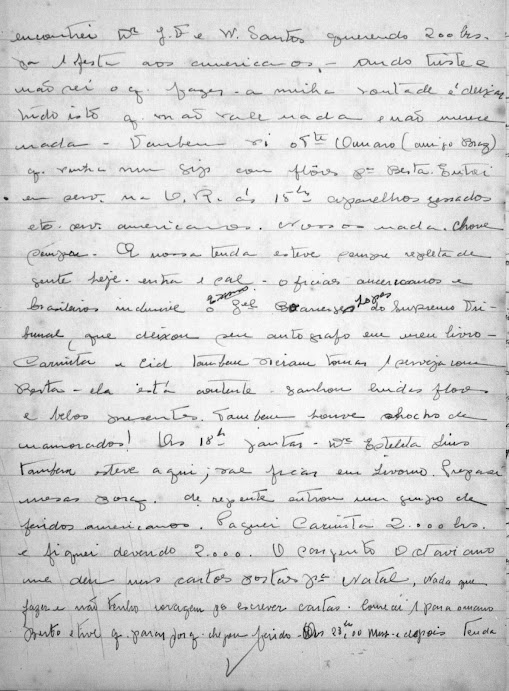 encontrei Dr J.D e W. Santos querendo 200 lrs.
pa 1 festa aos americanos, - Ando triste e
não sei o q. fazer - a minha vontade é deixar
tudo isto q. não vale nada e não merece
nada - Tambem vi o Amaro (amigo
q. vinha num Gip com flôres pa Berta. Entrei
em serv. na O.R. ás 15hs aparelhos gessados
etc. serv. americanos. Nossos nada. Chove
sempre. A nossa tenda esteve sempre repleta de
gente hoje. entra e sai - oficiais americanos e
brasileiros inclusive o Gel Lopes do Supremo Tri-
bunal, que deixou seu autografo em meu livro -
Carmita e Cid tambem vieram tomar 1 serveja com
Berta - ela está contente - ganhou lindas flores
e belos presentes. Tambem houve chocho de
namorados! As 18h jantar - Dr. Estelita Lins
tambem esteve aqui; vae ficar em Livorno.
mesas de repente entrou um grupo de
feridos americanos. Paguei Carmita 2.000 lrs.
e fiquei devendo 2.000. O sargento Octaviano
me deu uns cartões postas pa Natal, nada que
fazer e não tenho coragem pa escrever cartas. Comecei 1 para
e tive q. parar porq. chegou ferido - As e depois Tenda